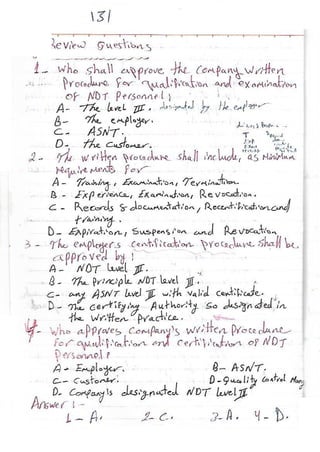 131
Review Questions
1- Who shall approve the Company Written
Procedure For Qualification and examination
OF NDT Personnel;
A- The level III. designated by the employer
B- The employer.
C- ASNT.
D- The Customer.
2- The written procedure shall include, as Minimum
Requirements For
A- Training, Examination, Termination.
B- Experience, Examination, Revocation.
C- Records & documentation, Recertification and
training.
D- Expiration, Suspension and Revocation
3- The employers certification procedure shall be
approved by!
A- NDT level III.
B- The Principle NDT level III.
C- any ASNT level III with valid certificate.
D- The Certifying Authority so designated in
the written Practice.
4- Who approves Company's written Procedure
for qualification and Certification of NDT
Personnel?
A- Employer. B- ASNT.
C- Customer. D- Quality Control Mang
D- Company's designated NDT level III
Answer:-
1- A. 2- C. 3- A. 4- D.